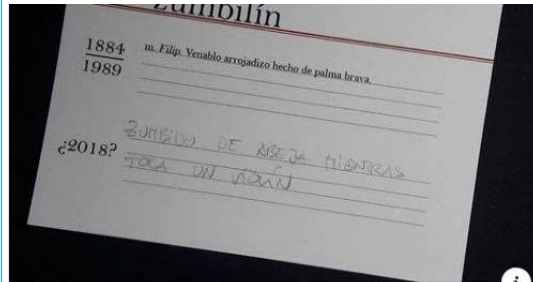 zumbilín
1884
1989
m. Filip. Venablo arrojadizo hecho de palma brava.
¿2018?
ZUMBIDO DE ABEJA MIENTRAS
TOCA UN VIOLÍN